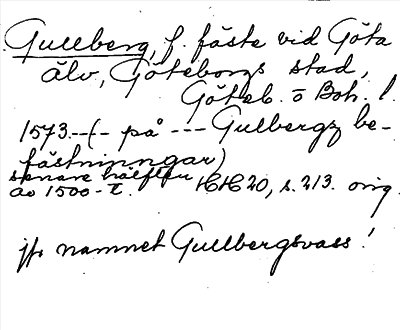 Gullberg, f. fäste vid Göta
älv, Göteborgs stad,
Göteb. o Boh. l.
1573.--(- på --- Gulbergz be-
fästninngar)
senare hälften
av 1500-t. HH 20, s. 213. orig.
jfr namnet Gullbergsvass!